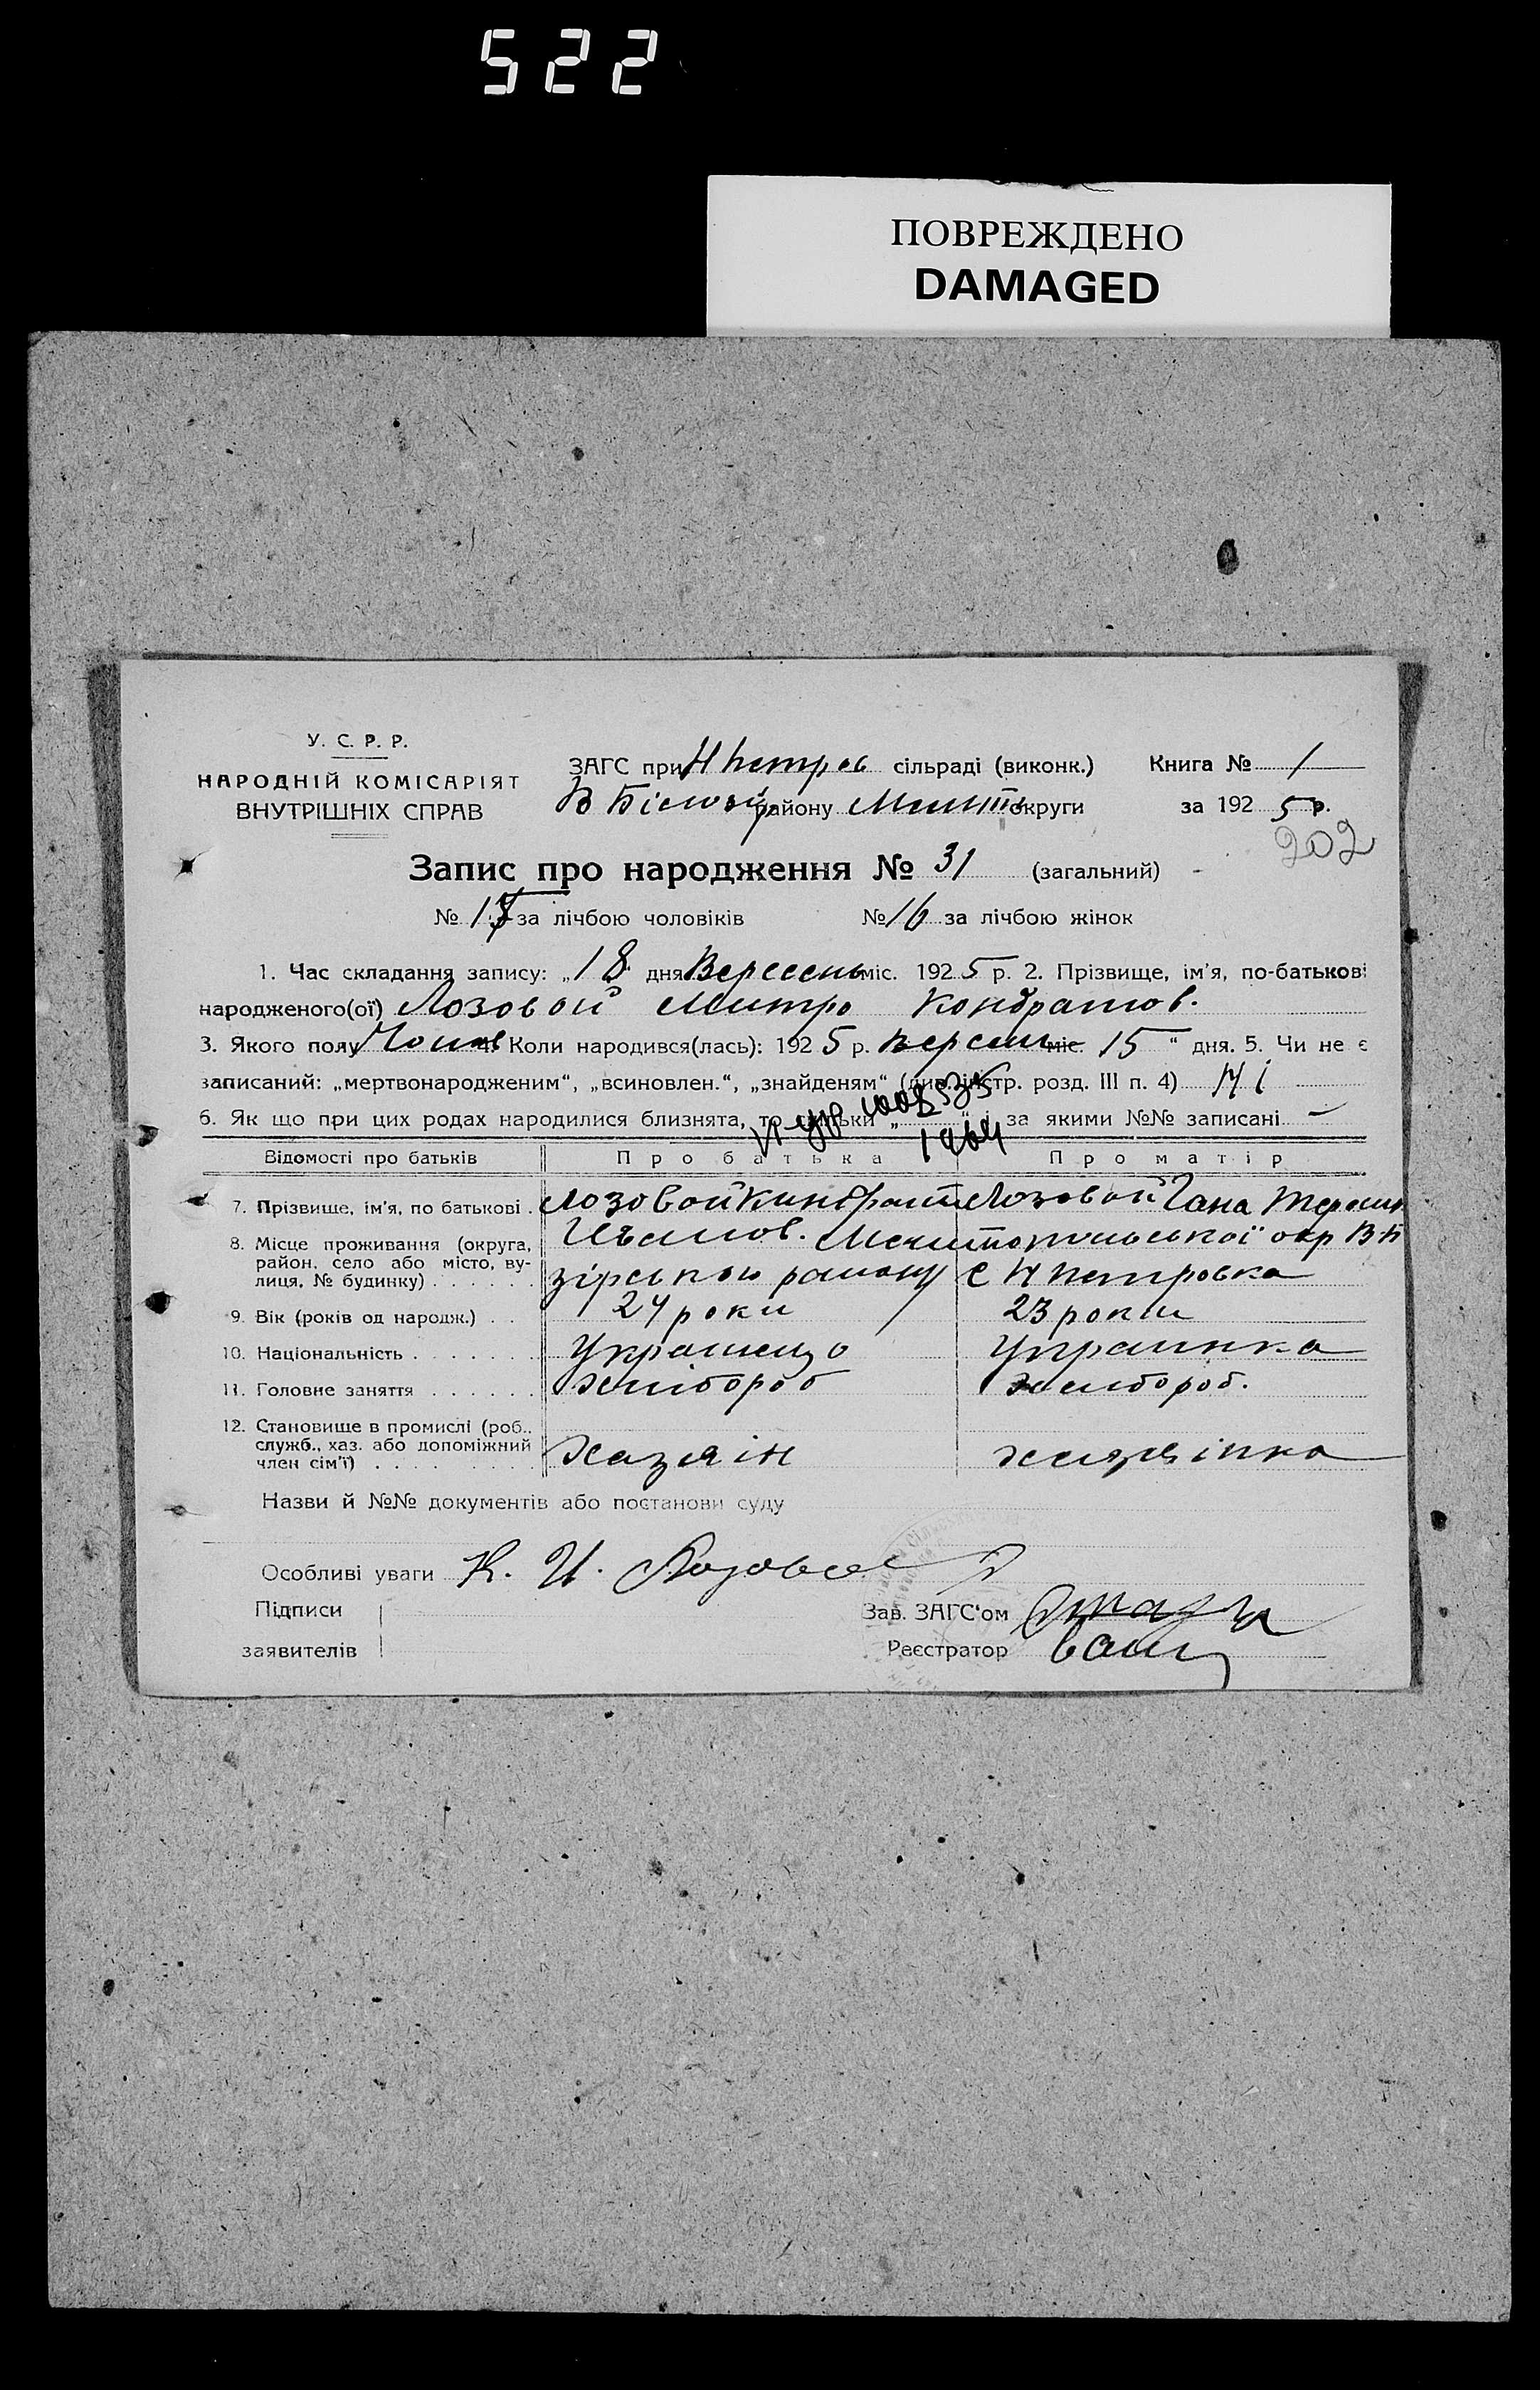 522
ПОВРЕЖДЕНО
DAMAGED
У. С. Р. Р.
НАРОДНІЙ КОМІСАРІЯТ
ВНУТРІШНІХ СПРАВ
ЗАГС при Н Петров сільраді (виконк.)
В Білозір району Меліт округи
Книга № 1
за 1925 р.
202
Запис про народження № 31 (загальний)
№ 15 за лічбою чоловіків № 16 за лічбою жінок
1. Час складання запису: „18 дня Вересень міс. 1925 р. 2. Прізвище, ім'я, по-батькові
народженого(ої) Лозовой Митро Кондратов.
3. Якого полу Чолов 4. Коли народився(лась): 1925 р. Вересень міс. 15 “ дня. 5. Чи не є
записаний: „мертвонародженим“, „всиновлен.“, „знайденям“ (див. інстр. розд. III п. 4) Ні
6. Як що при цих родах народилися близнята, то скільки „ “ і за якими №№ записані —
1964
Відомості про батьків Про батька Про матір
7. Прізвище, ім'я, по батькові . Лозовой Киндрат Лозовой Гана
8. Місце проживання (округа, район, село або місто, вулиця, № будинку) . . . . . Мелитопольської окр В-Б
зірського району с Н Петровка
9. Вік (років од народж.) . . 24 роки 23 роки
10. Національність . . . . . . . Украинець Украинка
11. Головне заняття . . . . . . хлибороб хлибороб.
12. Становище в промислі (роб., служб., хаз. або допоміжний член сім'ї) . . . . Хазяін хазяінка
Назви й №№ документів або постанови суду
Особливі уваги К. И. Лозовой
Підписи
заявителів
Зав. ЗАГС'ом
Реєстратор